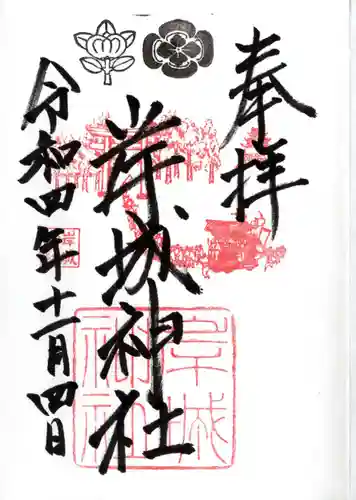 奉拝
岸城神社
令和四年十一月四日
岸城